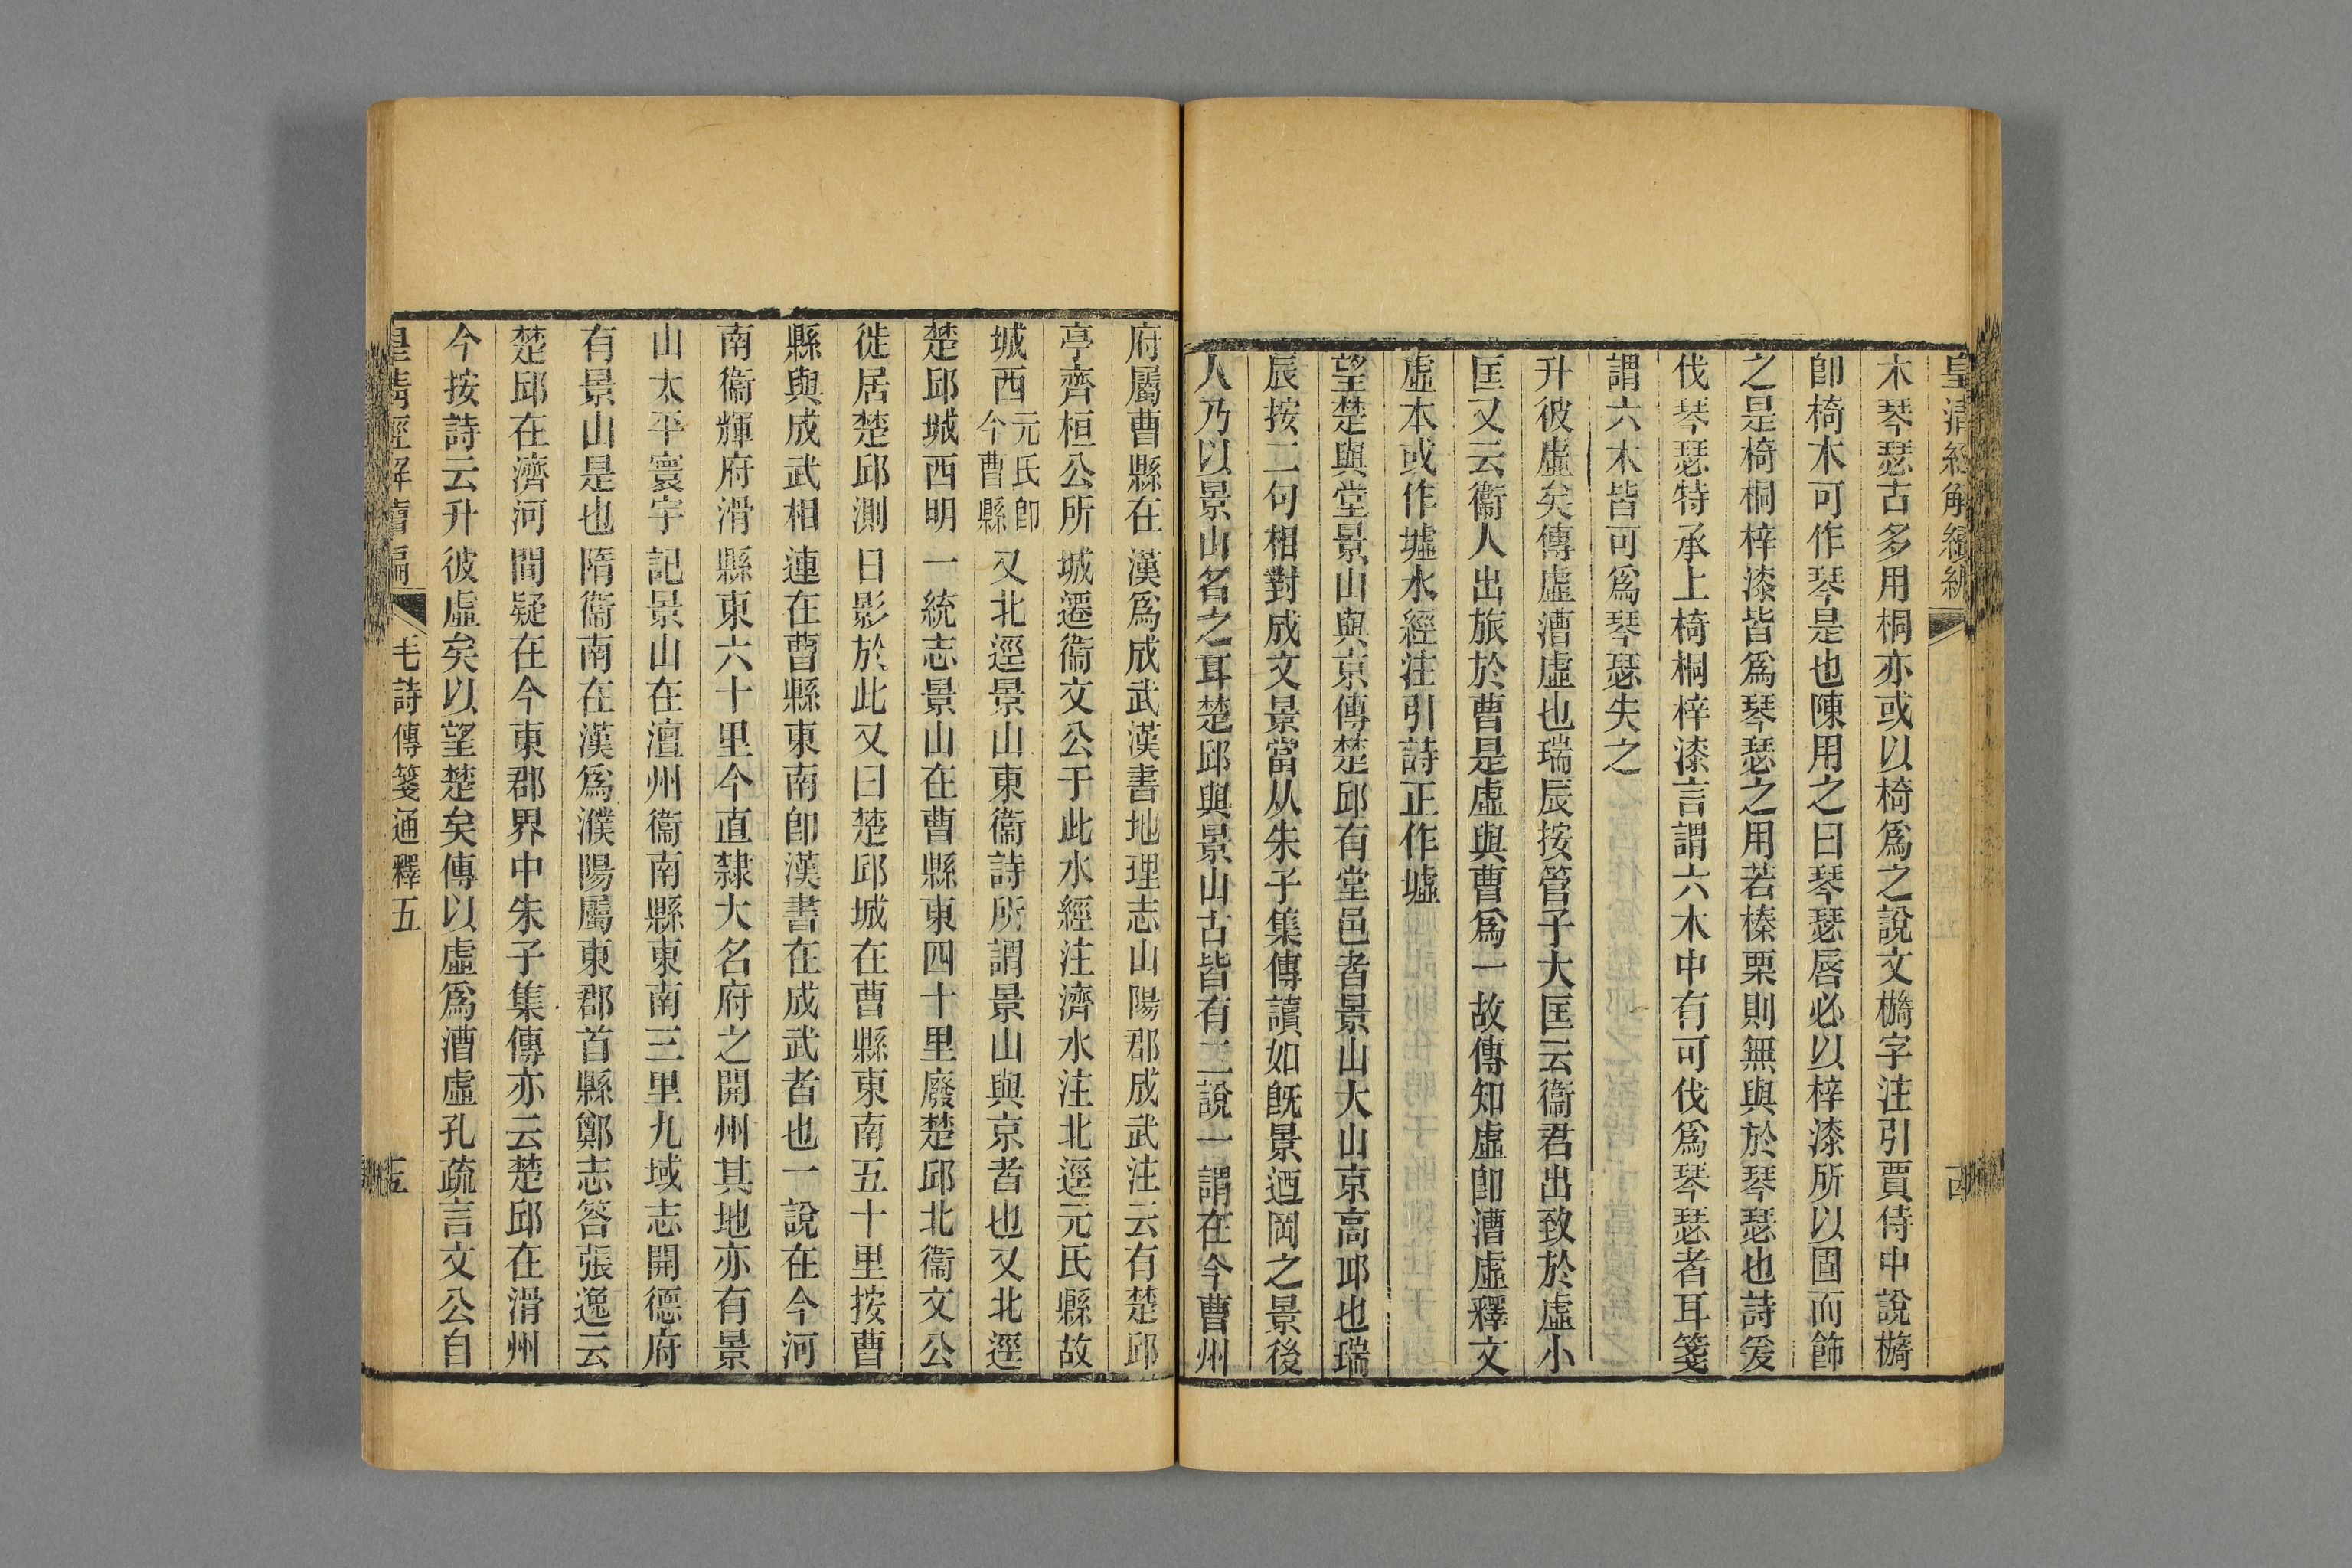 皇清經解續編
木琴瑟古多用桐亦或以椅爲之說文檹字注引賈侍中說檹
卽椅木可作琴是也陳用之曰琴瑟唇必以梓漆所以固而飾
之是椅桐梓漆皆爲琴瑟之用若榛栗則無與於琴瑟也詩爰
伐琴瑟特承上椅桐梓漆言謂六木中有可伐爲琴瑟者耳箋
謂六木皆可爲琴瑟失之
升彼虛矣傳虛漕虛也瑞辰按管子大匡云衞君出致於虛小
匡又云衞人出旅於曹是虛與曹爲一故傳知虛卽漕虛釋文
虛本或作墟水經注引詩正作墟
望楚與堂景山與京傳楚邱有堂邑者景山大山京高邱也瑞
辰按二句相對成文景當从朱子集傳讀如旣景迺岡之景後
人乃以景山名之耳楚邱與景山古皆有二說一謂在今曹州
府屬曹縣在漢爲成武漢書地理志山陽郡成武注云有楚邱
亭齊桓公所城遷衞文公于此水經注濟水注北逕元氏縣故
城西元氏卽今曹縣又北逕景山東衞詩所謂景山與京者也又北逕
楚邱城西明一統志景山在曹縣東四十里廢楚邱北衞文公
徙居楚邱測日影於此又曰楚邱城在曹縣東南五十里按曹
縣與成武相連在曹縣東南卽漢書在成武者也一說在今河
南衞輝府滑縣東六十里今直隸大名府之開州其地亦有景
山太平寰宇記景山在澶州衞南縣東南三里九域志開德府
有景山是也隋衞南在漢爲濮陽屬東郡首縣鄭志答張逸云
楚邱在濟河間疑在今東郡界中朱子集傳亦云楚邱在滑州
今按詩云升彼虛矣以望楚矣傳以虛爲漕虛孔疏言文公自
皇清經解續編 毛詩傳箋通釋五